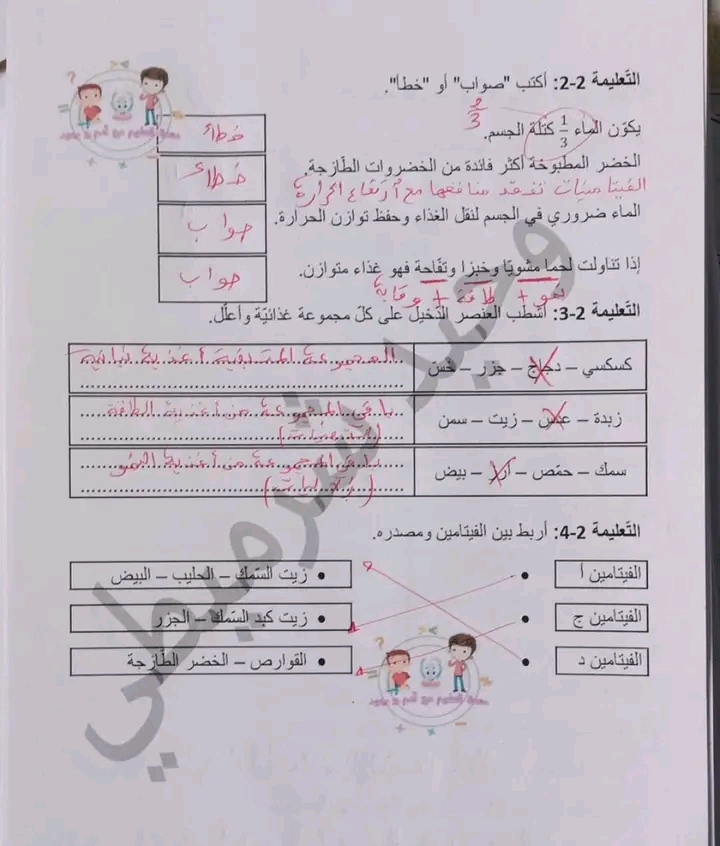 التّعليمة 2-2: أكتب "صواب" أو "خطأ".
يكوّن الماء 1/3 كتلة الجسم.
2/3
خطأ
الخضر المطبوخة أكثر فائدة من الخضروات الطّازجة.
خطأ
الفيتامينات تفقد منافعها مع ارتفاع الحرارة
الماء ضروري في الجسم لنقل الغذاء وحفظ توازن الحرارة.
صواب
إذا تناولت لحما مشويّا وخبزا وتفّاحة فهو غذاء متوازن.
صواب
نمو + طاقة + وقاية
التّعليمة 2-3: أشطب العنصر الدّخيل على كلّ مجموعة غذائيّة وأعلّل.
كسكسي – دجاج – جزر – خس
المجموعة المتبقية أغذية نباتية
زبدة – عدس – زيت – سمن
باقي المجموعة من أغذية الطاقة
سمك – حمّص – أرز – بيض
باقي المجموعة من أغذية النمو
التّعليمة 2-4: أربط بين الفيتامين ومصدره.
الفيتامين أ
زيت السّمك – الحليب – البيض
الفيتامين ج
زيت كبد السّمك – الجزر
الفيتامين د
القوارص – الخضر الطّازجة